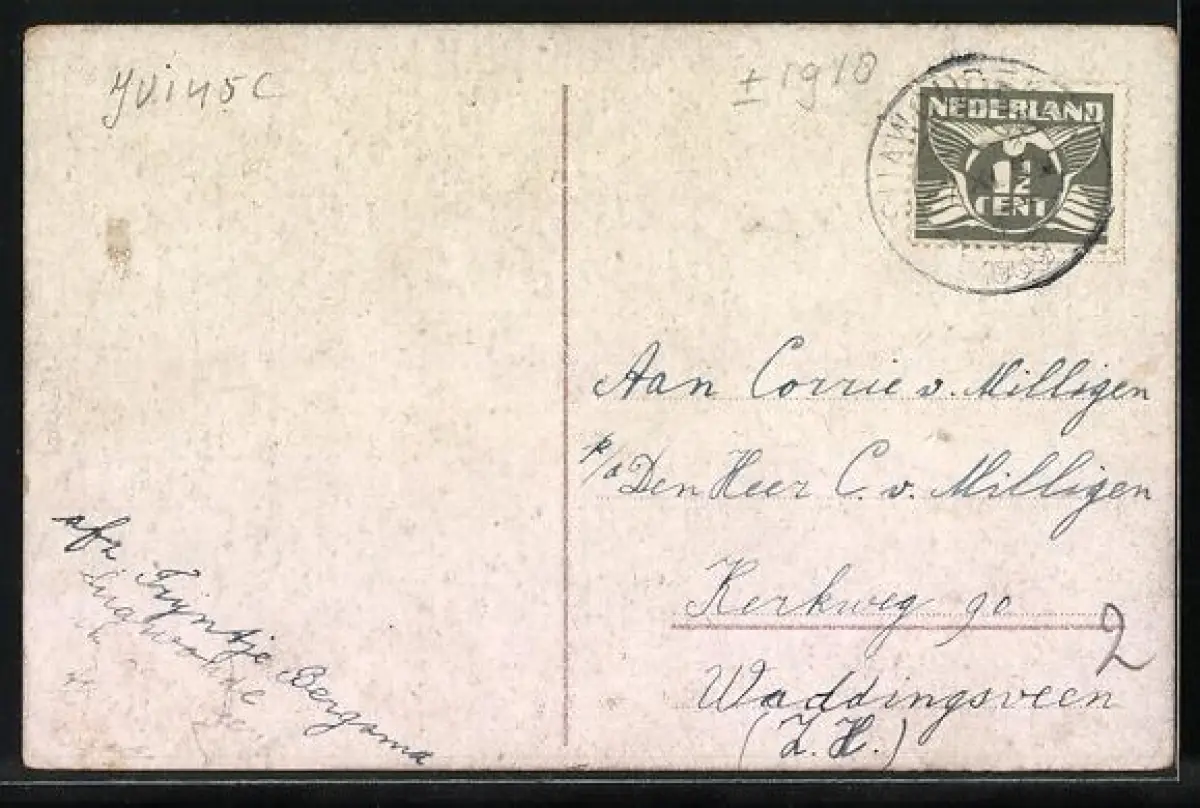 ± 1910
NEDERLAND
1½
CENT
Aan Corrie v. Milligen
p/a Den Heer C. v. Milligen
Kerkweg 90
Waddingsveen
(Z. H.)
2
afz. Trijntje Bergsma